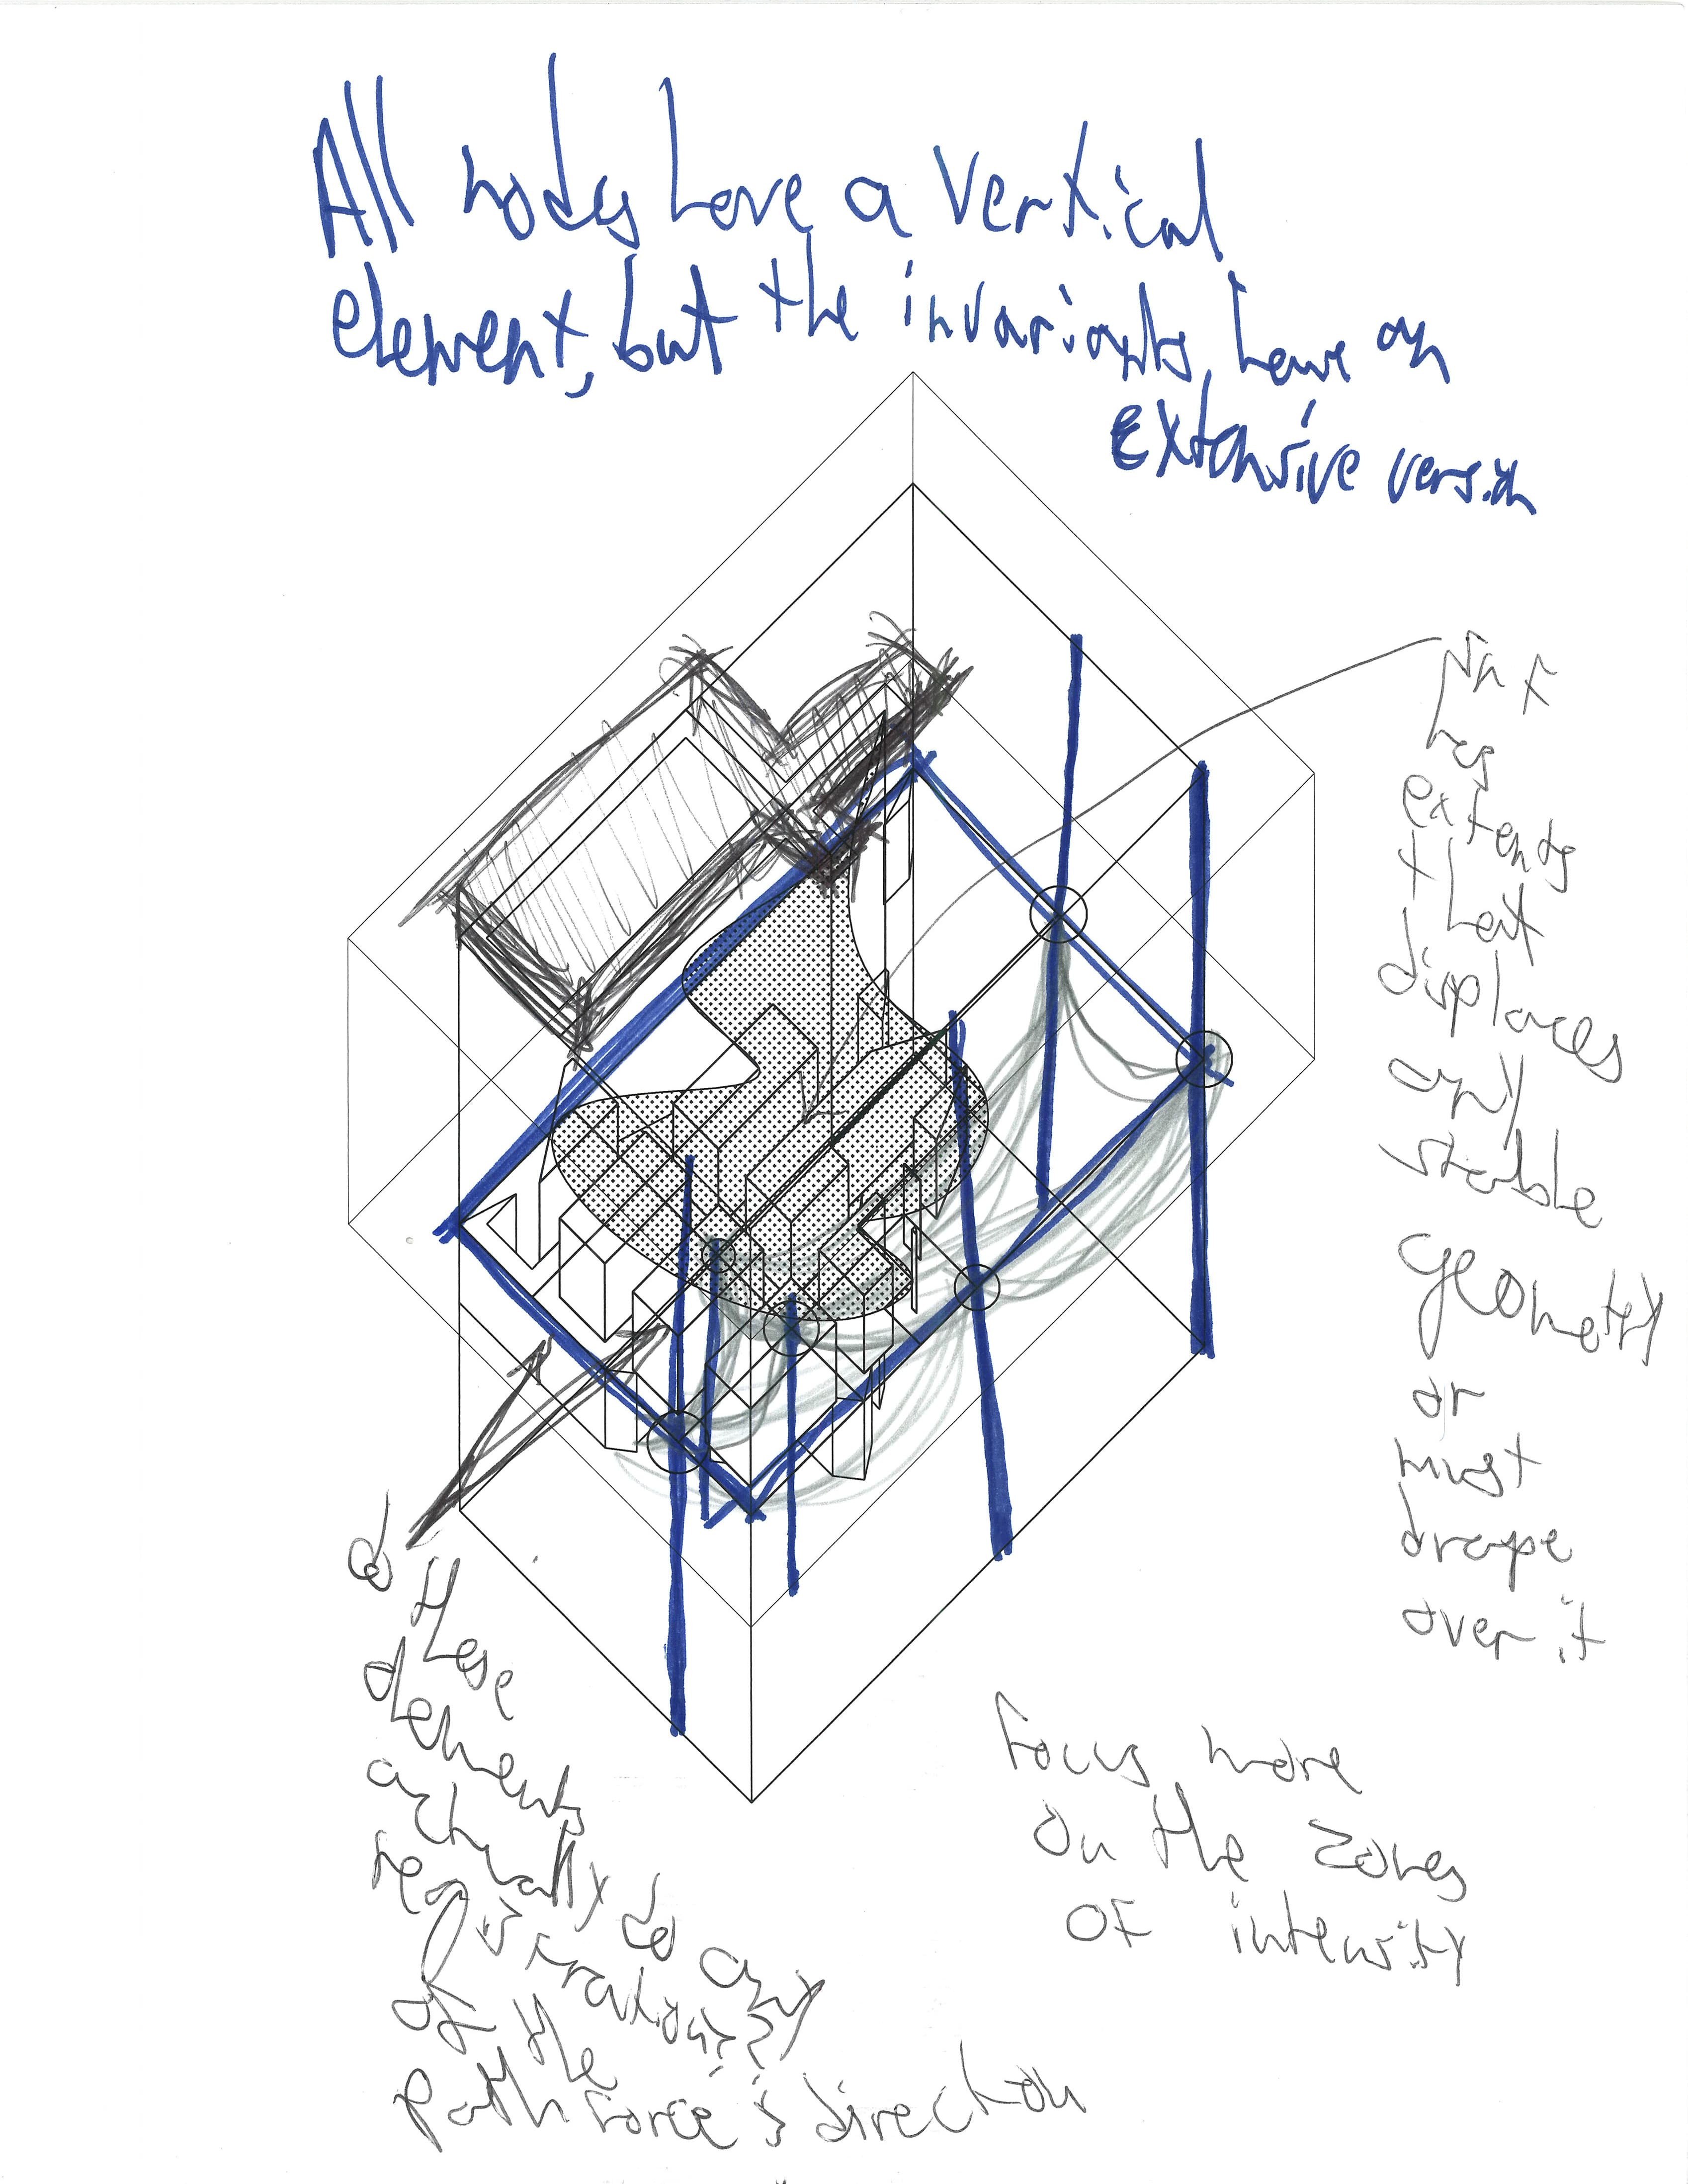 All nodes have a vertical
element, but the invariants have an
extensive version
has
extents
that
displaces
any
stable
geometry
or
must
drape
over it
these
elements
actually do any
of the
path force's direction
focus more
on the zones
OF intensity